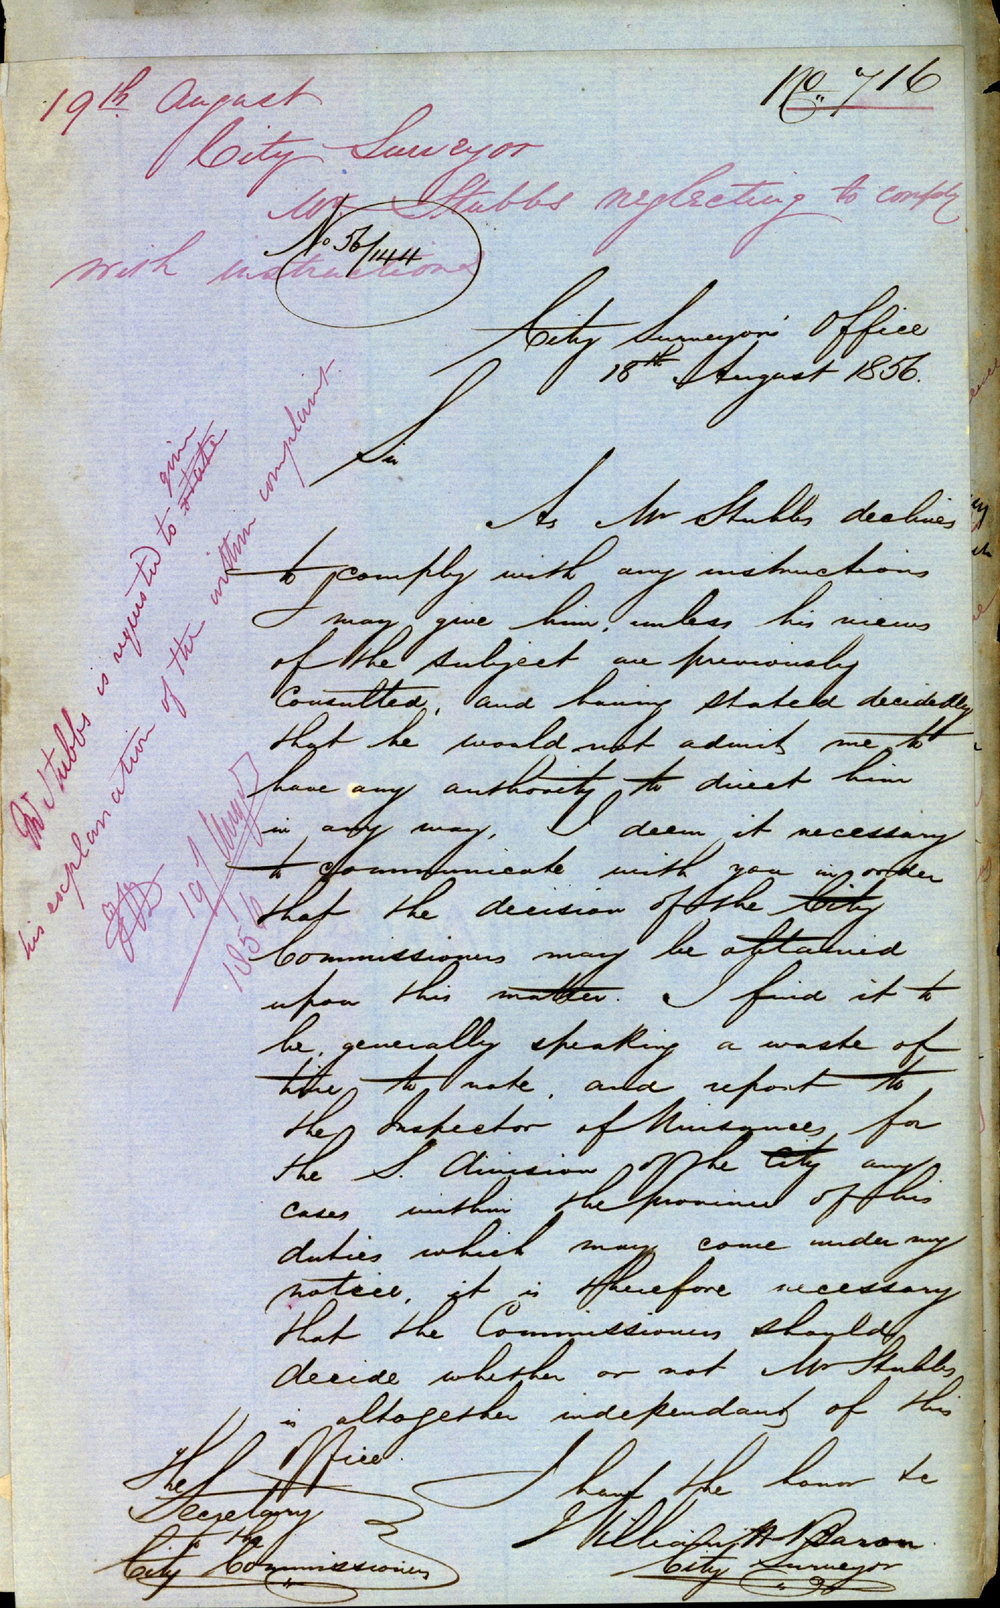 No. 716
19th August
City Surveyor
Mr. Stubbs neglecting to comply
with instructions
No 56/144
City Surveyor's Office
18th August 1856.
Sir
As Mr Stubbs declines
to comply with any instructions
I may give him, unless his views
of the subject are previously
consulted, and having stated decidedly
that he would not admit me to
have any authority to direct him
in any way, I deem it necessary
to communicate with you in order
that the decision of the City
Commissioners may be obtained
upon this matter. I find it to
be, generally speaking a waste of
time to note, and report to
the Inspector of Nuisances for
the S. division of the City any
cases within the province of his
duties which may come under my
notice, it is therefore necessary
that the Commissioners should
decide whether or not Mr Stubbs
is altogether independant of this
Office.
I have the honor &c
William H Baron
City Surveyor
The
Secretary
to the
City Commissioners
Mr Stubbs is requested to state given
his explanation of the within complaint.
19/Augst
1856